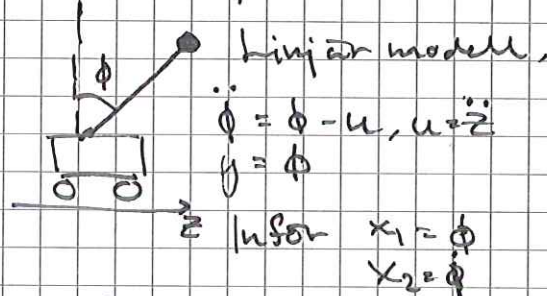 Linjär modell,
ϕ
ϕ̈ = ϕ - u, u = z̈
y = ϕ
z
Inför x₁ = ϕ
x₂ = ϕ̇